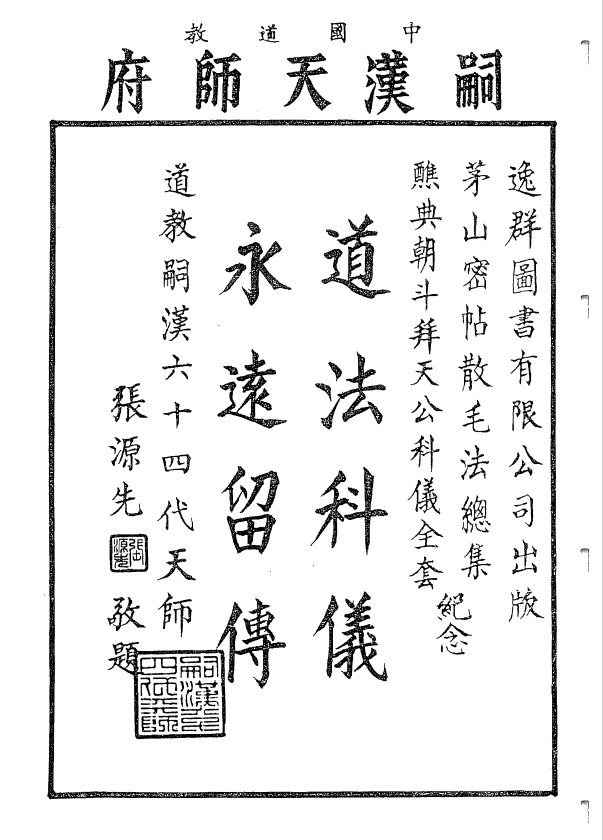 中國道教
嗣漢天師府
逸群圖書有限公司出版
茅山密帖散毛法總集
醮典朝斗拜天公科儀全套
紀念
道法科儀
永遠留傳
道教嗣漢六十四代天師
張源先
敬題